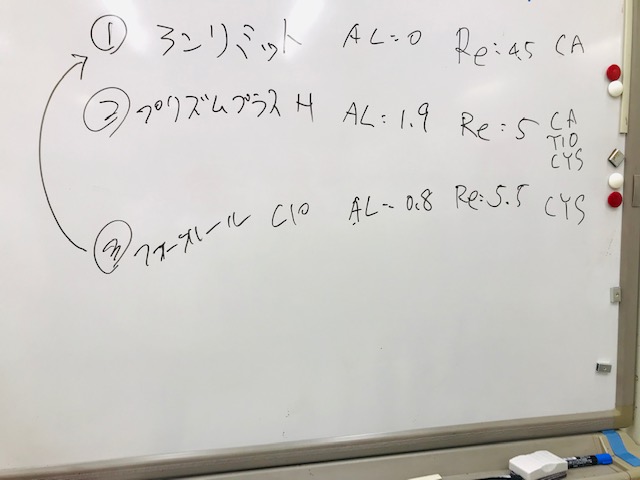 ① ランリミット AL=0 Re:4.5 CA
② プリズムプラス H AL:1.9 Re:5 CA
TIO
CYS
③ フォーオール C10 AL=0.8 Re:5.5 CYS